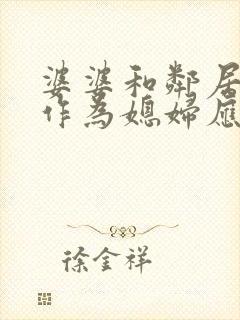 婆婆和鄰居
作為媳婦應
徐金祥